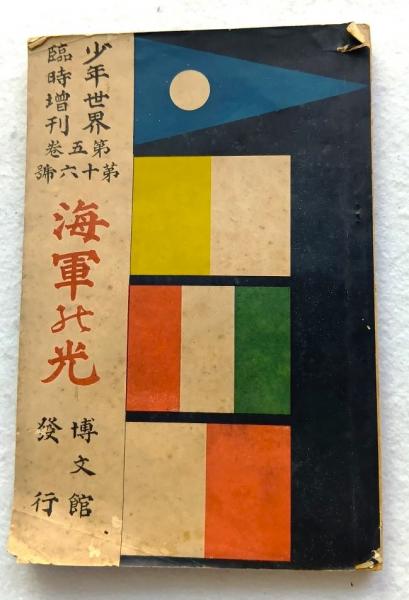 少年世界
臨時增刊
第五卷
第十六號
海軍の光
博文館
發行